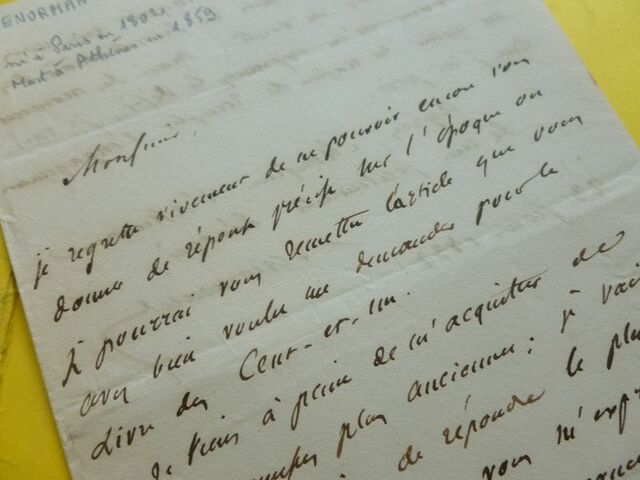 ENORMAN
né à Paris en 1802
Mort à Athènes en 1859
Monsieur,
je regrette vivement de ne pouvoir encore vous
donner de réponse précise sur l'époque où
je pourrai vous remettre l'article que vous
avez bien voulu me demander pour le
Livre des Cent-et-un.
Je viens à peine de m'acquitter de
plus anciennes; je vais
de répondre le plus
vous m'expr